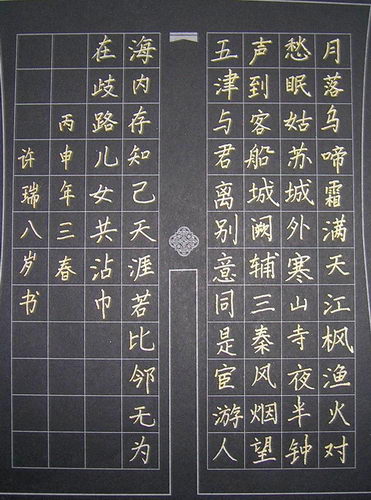 月落乌啼霜满天江枫渔火对
愁眠姑苏城外寒山寺夜半钟
声到客船城阙辅三秦风烟望
五津与君离别意同是宦游人
海内存知己天涯若比邻无为
在歧路儿女共沾巾
丙申年三春
许瑞八岁书